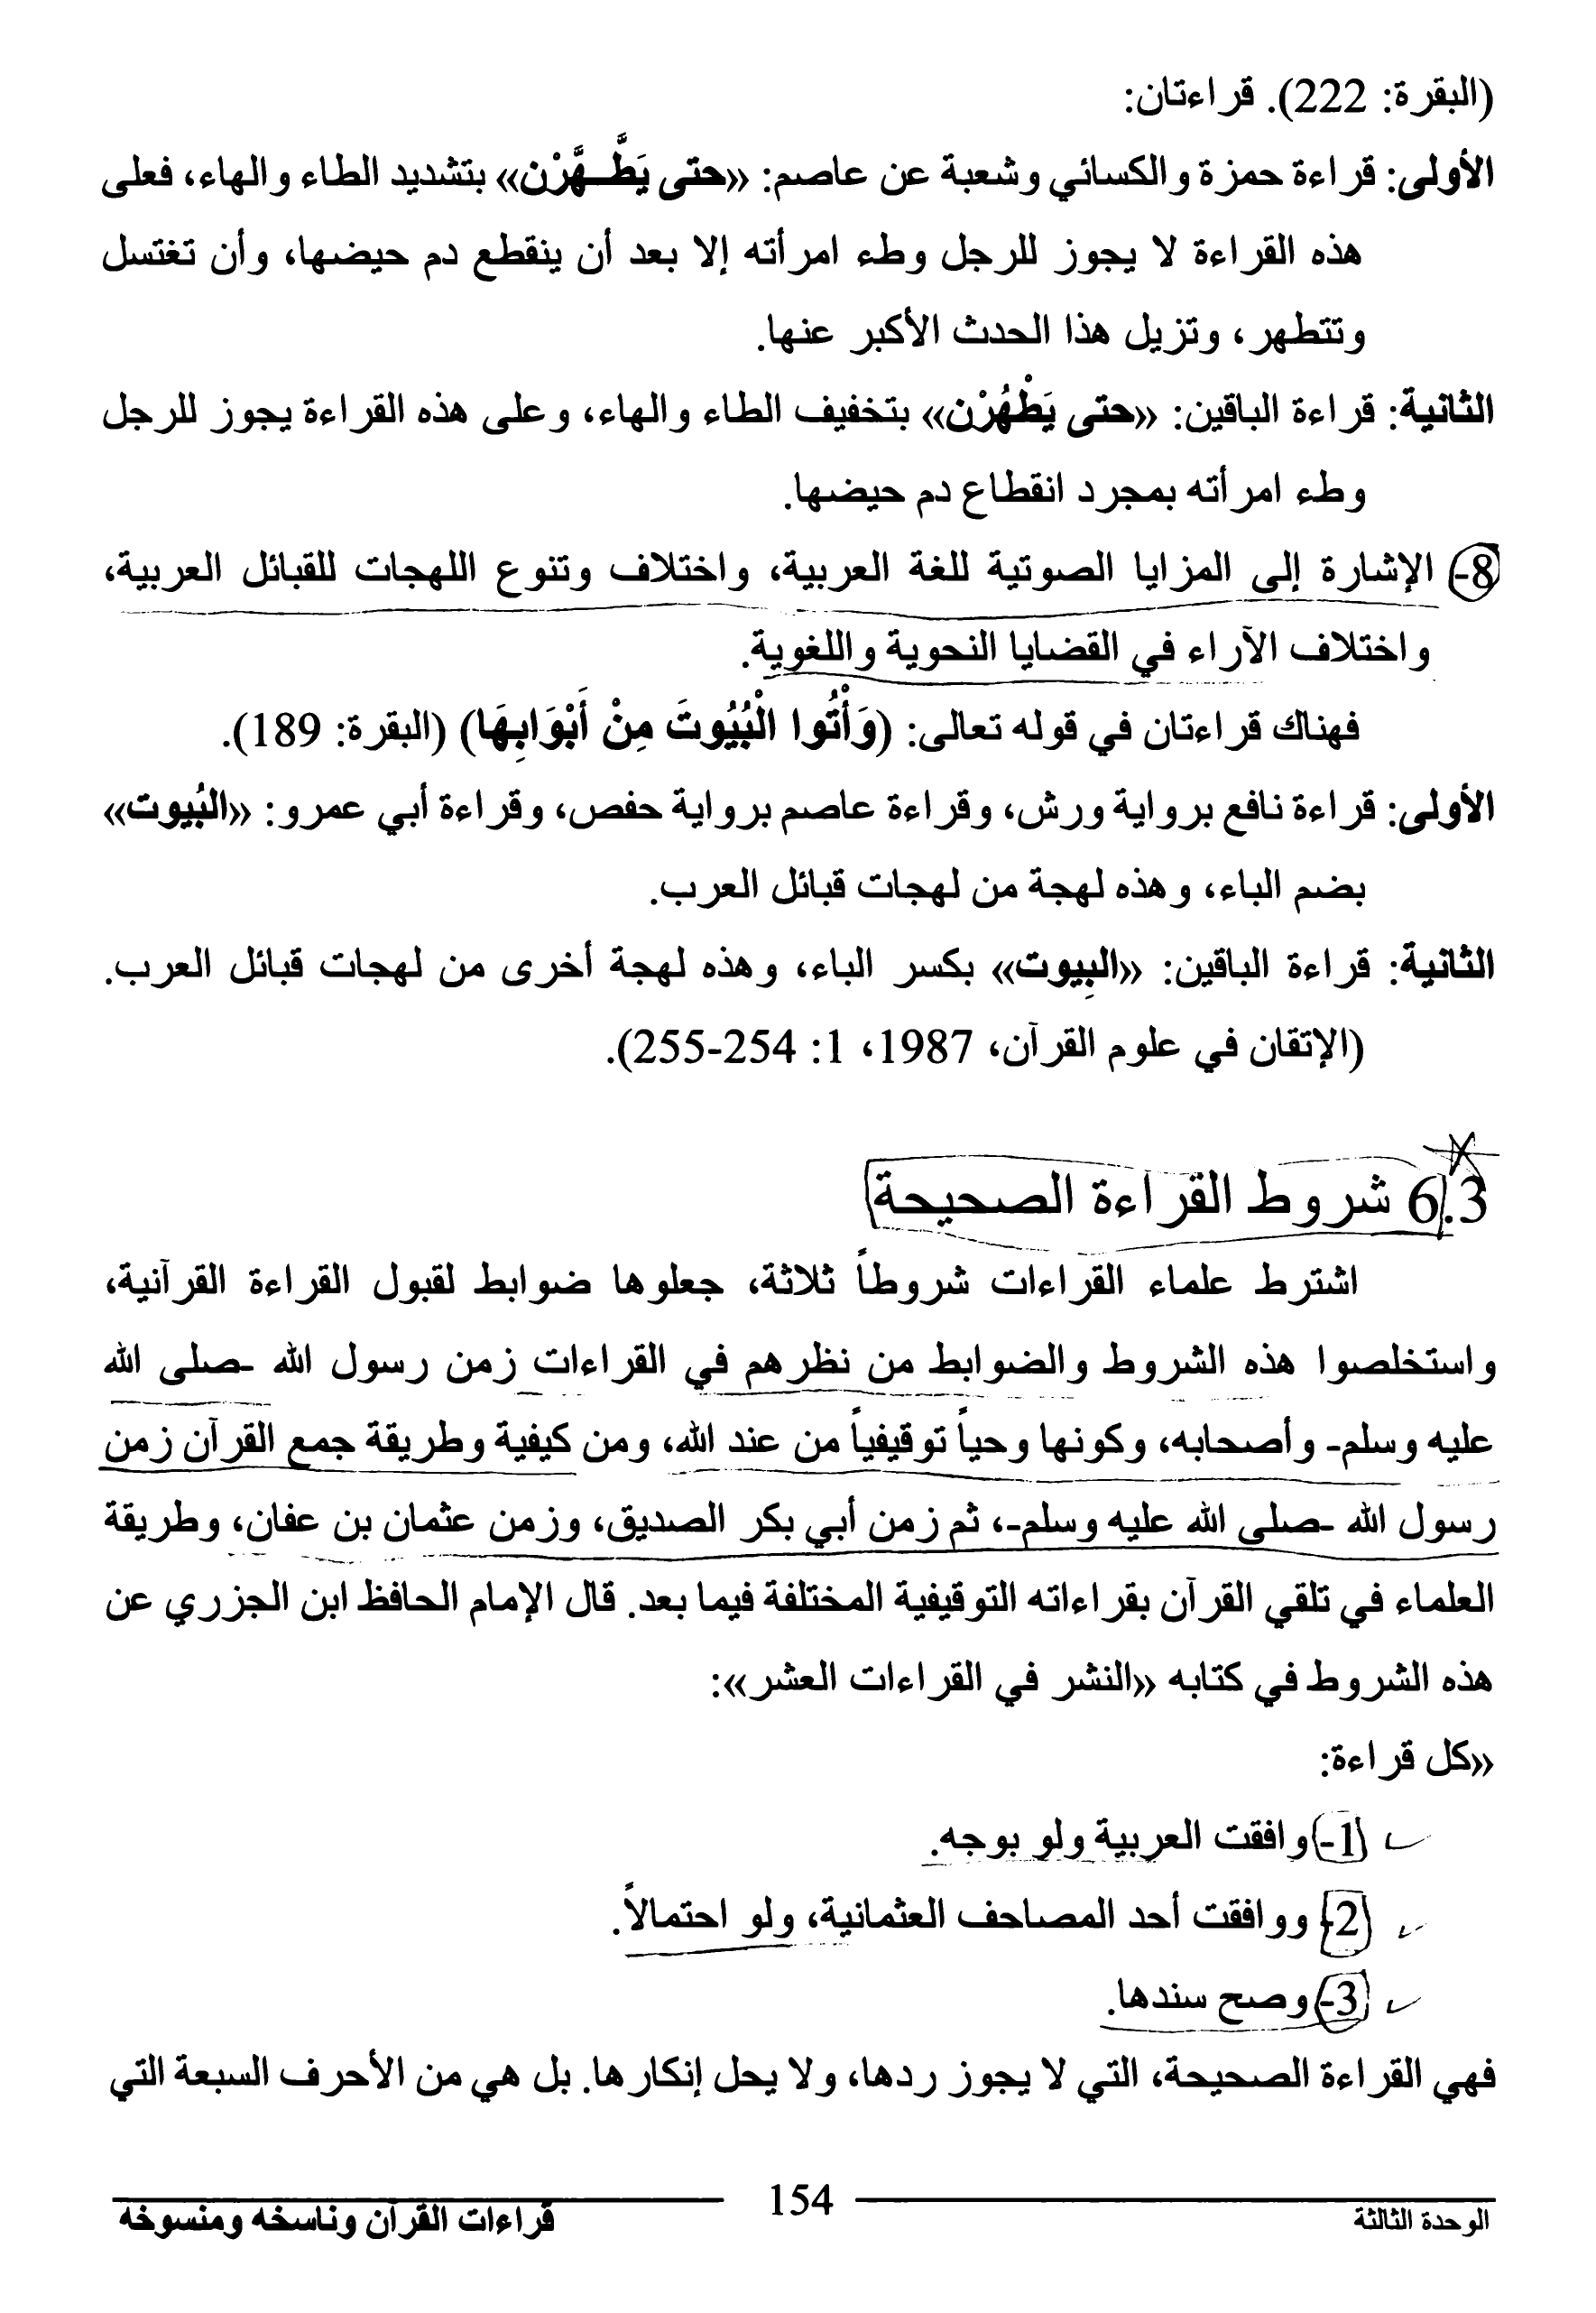 (البقرة: 222). قراءتان:
الأولى: قراءة حمزة والكسائي وشعبة عن عاصم: «حتى يَطَّــهَّرْن» بتشديد الطاء والهاء، فعلى
هذه القراءة لا يجوز للرجل وطء امرأته إلا بعد أن ينقطع دم حيضها، وأن تغتسل
وتتطهر، وتزيل هذا الحدث الأكبر عنها.
الثانية: قراءة الباقين: «حتى يَطْهُرْن» بتخفيف الطاء والهاء، وعلى هذه القراءة يجوز للرجل
وطء امرأته بمجرد انقطاع دم حيضها.
8- الإشارة إلى المزايا الصوتية للغة العربية، واختلاف وتنوع اللهجات للقبائل العربية،
واختلاف الآراء في القضايا النحوية واللغوية.
فهناك قراءتان في قوله تعالى: (وَأْتُوا الْبُيُوتَ مِنْ أَبْوَابِهَا) (البقرة: 189).
الأولى: قراءة نافع برواية ورش، وقراءة عاصم برواية حفص، وقراءة أبي عمرو: «البُيوت»
بضم الباء، وهذه لهجة من لهجات قبائل العرب.
الثانية: قراءة الباقين: «البِيوت» بكسر الباء، وهذه لهجة أخرى من لهجات قبائل العرب.
(الإتقان في علوم القرآن، 1987، 1: 254-255).
6.3 شروط القراءة الصحيحة
اشترط علماء القراءات شروطاً ثلاثة، جعلوها ضوابط لقبول القراءة القرآنية،
واستخلصوا هذه الشروط والضوابط من نظرهم في القراءات زمن رسول الله -صلى الله
عليه وسلم- وأصحابه، وكونها وحياً توقيفياً من عند الله، ومن كيفية وطريقة جمع القرآن زمن
رسول الله -صلى الله عليه وسلم-، ثم زمن أبي بكر الصديق، وزمن عثمان بن عفان، وطريقة
العلماء في تلقي القرآن بقراءاته التوقيفية المختلفة فيما بعد. قال الإمام الحافظ ابن الجزري عن
هذه الشروط في كتابه «النشر في القراءات العشر»:
«كل قراءة:
1- وافقت العربية ولو بوجه.
2- ووافقت أحد المصاحف العثمانية، ولو احتمالاً.
3- وصح سندها.
فهي القراءة الصحيحة، التي لا يجوز ردها، ولا يحل إنكارها. بل هي من الأحرف السبعة التي
الوحدة الثالثة 154 قراءات القرآن وناسخه ومنسوخه